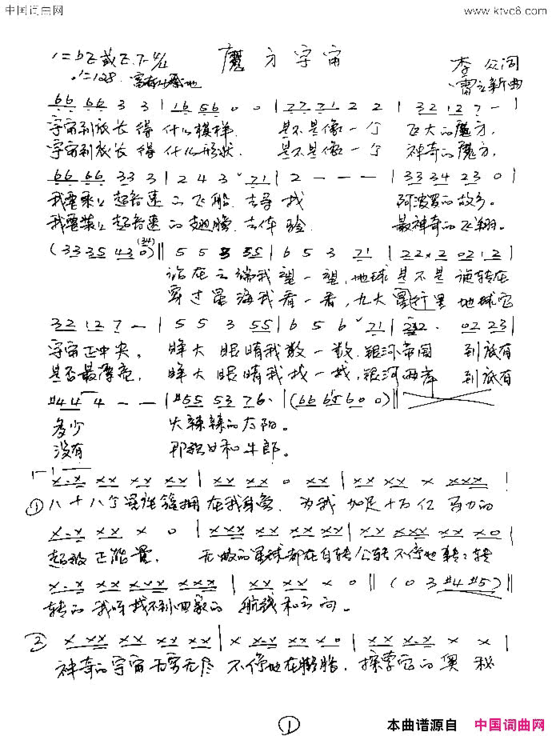 中国词曲网
www.ktvc8.com
魔方宇宙
1=bE或E、F 4/4
♩=128
李众词
雷立新曲
66 66 3 3 | 16 56 0 0 | 77 71 2 2 | 32 12 7 - |
宇宙到底长得什么模样. 是不是像一个 飞大的魔方,
宇宙到底长得什么形状. 是不是像一个 神奇的魔方,
66 66 33 3 | 2 4 3 71 | 2 - - - | 33 34 23 0 |
我要乘上超音速的飞船 去寻找 阿波罗的故乡。
我要装上超音速的翅膀 去体验 最神奇的飞翔。
(33 35 43 0) || 5 5 3 55 | 6 5 3 21 | 22 2 02 12 |
站在云端我望一望,地球是不是旋转在
穿过星海我看一看,九大行星 地球它
32 12 7 - | 5 5 3 55 | 6 5 6 21 | 22. 02 23 |
宇宙正中央, 睁大眼睛我数一数.银河帝国 到底有
是否最漂亮, 睁大眼睛我找一找,银河两岸 到底有
#44 4 - - | #55 53 76. | (66 65 60 0) ||
多少 火辣辣的太阳。
没有 那织女和牛郎。
① 八十八个星座簇拥在我身旁, 为我加足十万亿马力的
超级正能量, 无数的星球都在自转公转不停地转转
转的我呀找不到回家的航线和方向。
(0 3 #4 #5) ||
② 神奇的宇宙无穷无尽 不停地在膨胀, 探索它的奥秘
①
本曲谱源自 中国词曲网